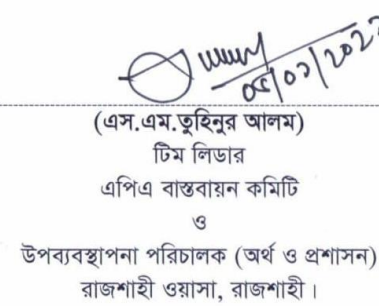 (এস.এম.তুহিনুর আলম)
টিম লিডার
এপিএ বাস্তবায়ন কমিটি
ও
উপব্যবস্থাপনা পরিচালক (অর্থ ও প্রশাসন)
রাজশাহী ওয়াসা, রাজশাহী।